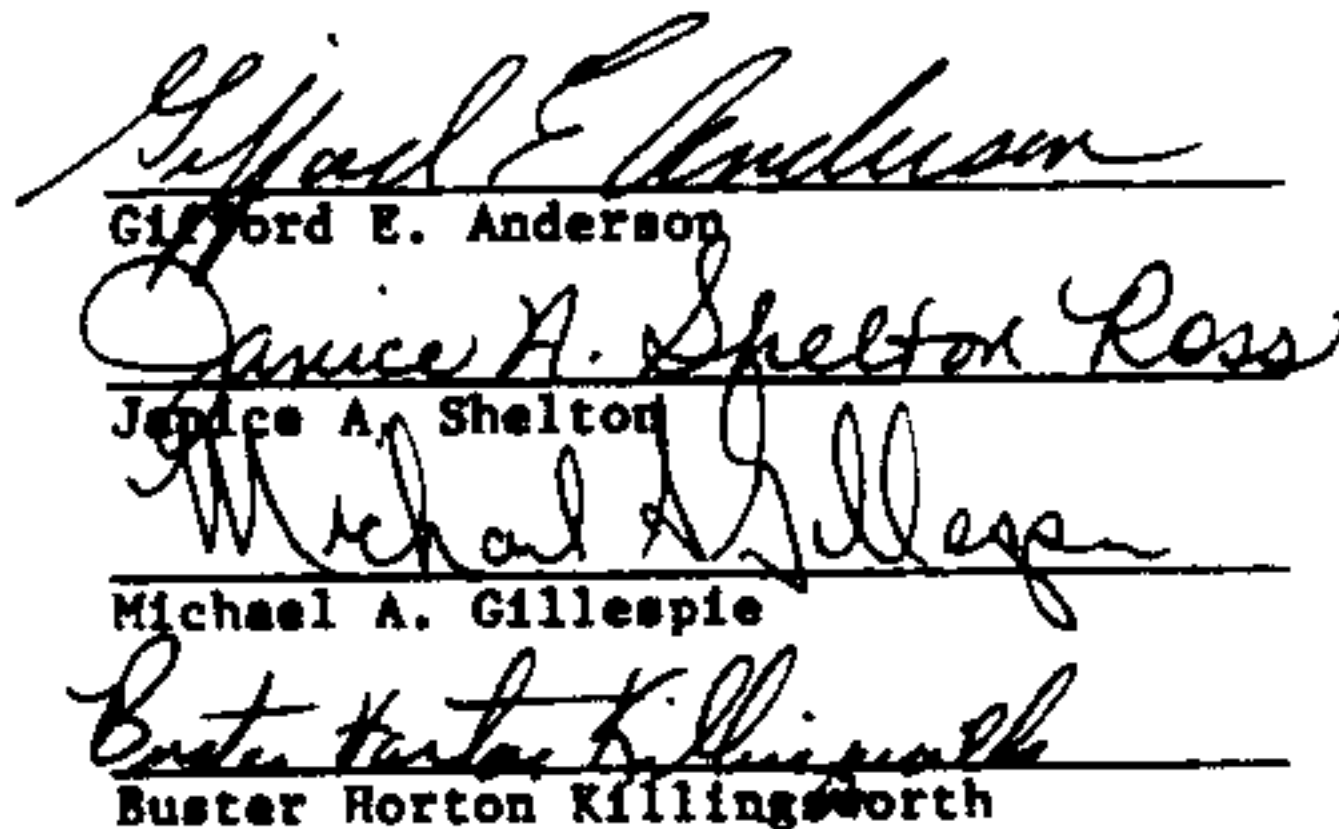 Gifford E Anderson
Gifford E. Anderson
Janice A. Shelton Ross
Janice A. Shelton
Michael A Gillespie
Michael A. Gillespie
Buster Horton Killingsworth
Buster Horton Killingsworth